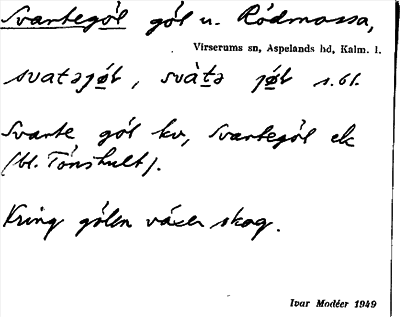 Svartegöl göl n. Rödmossa,
Virserums sn, Aspelands hd, Kalm. l.
svatəjøl, svàtə jøl s.bl.
Svarte göl kv, Svartegöl ek
(bl. Tönshult).
Kring gölen växer skog.
Ivar Modéer 1949